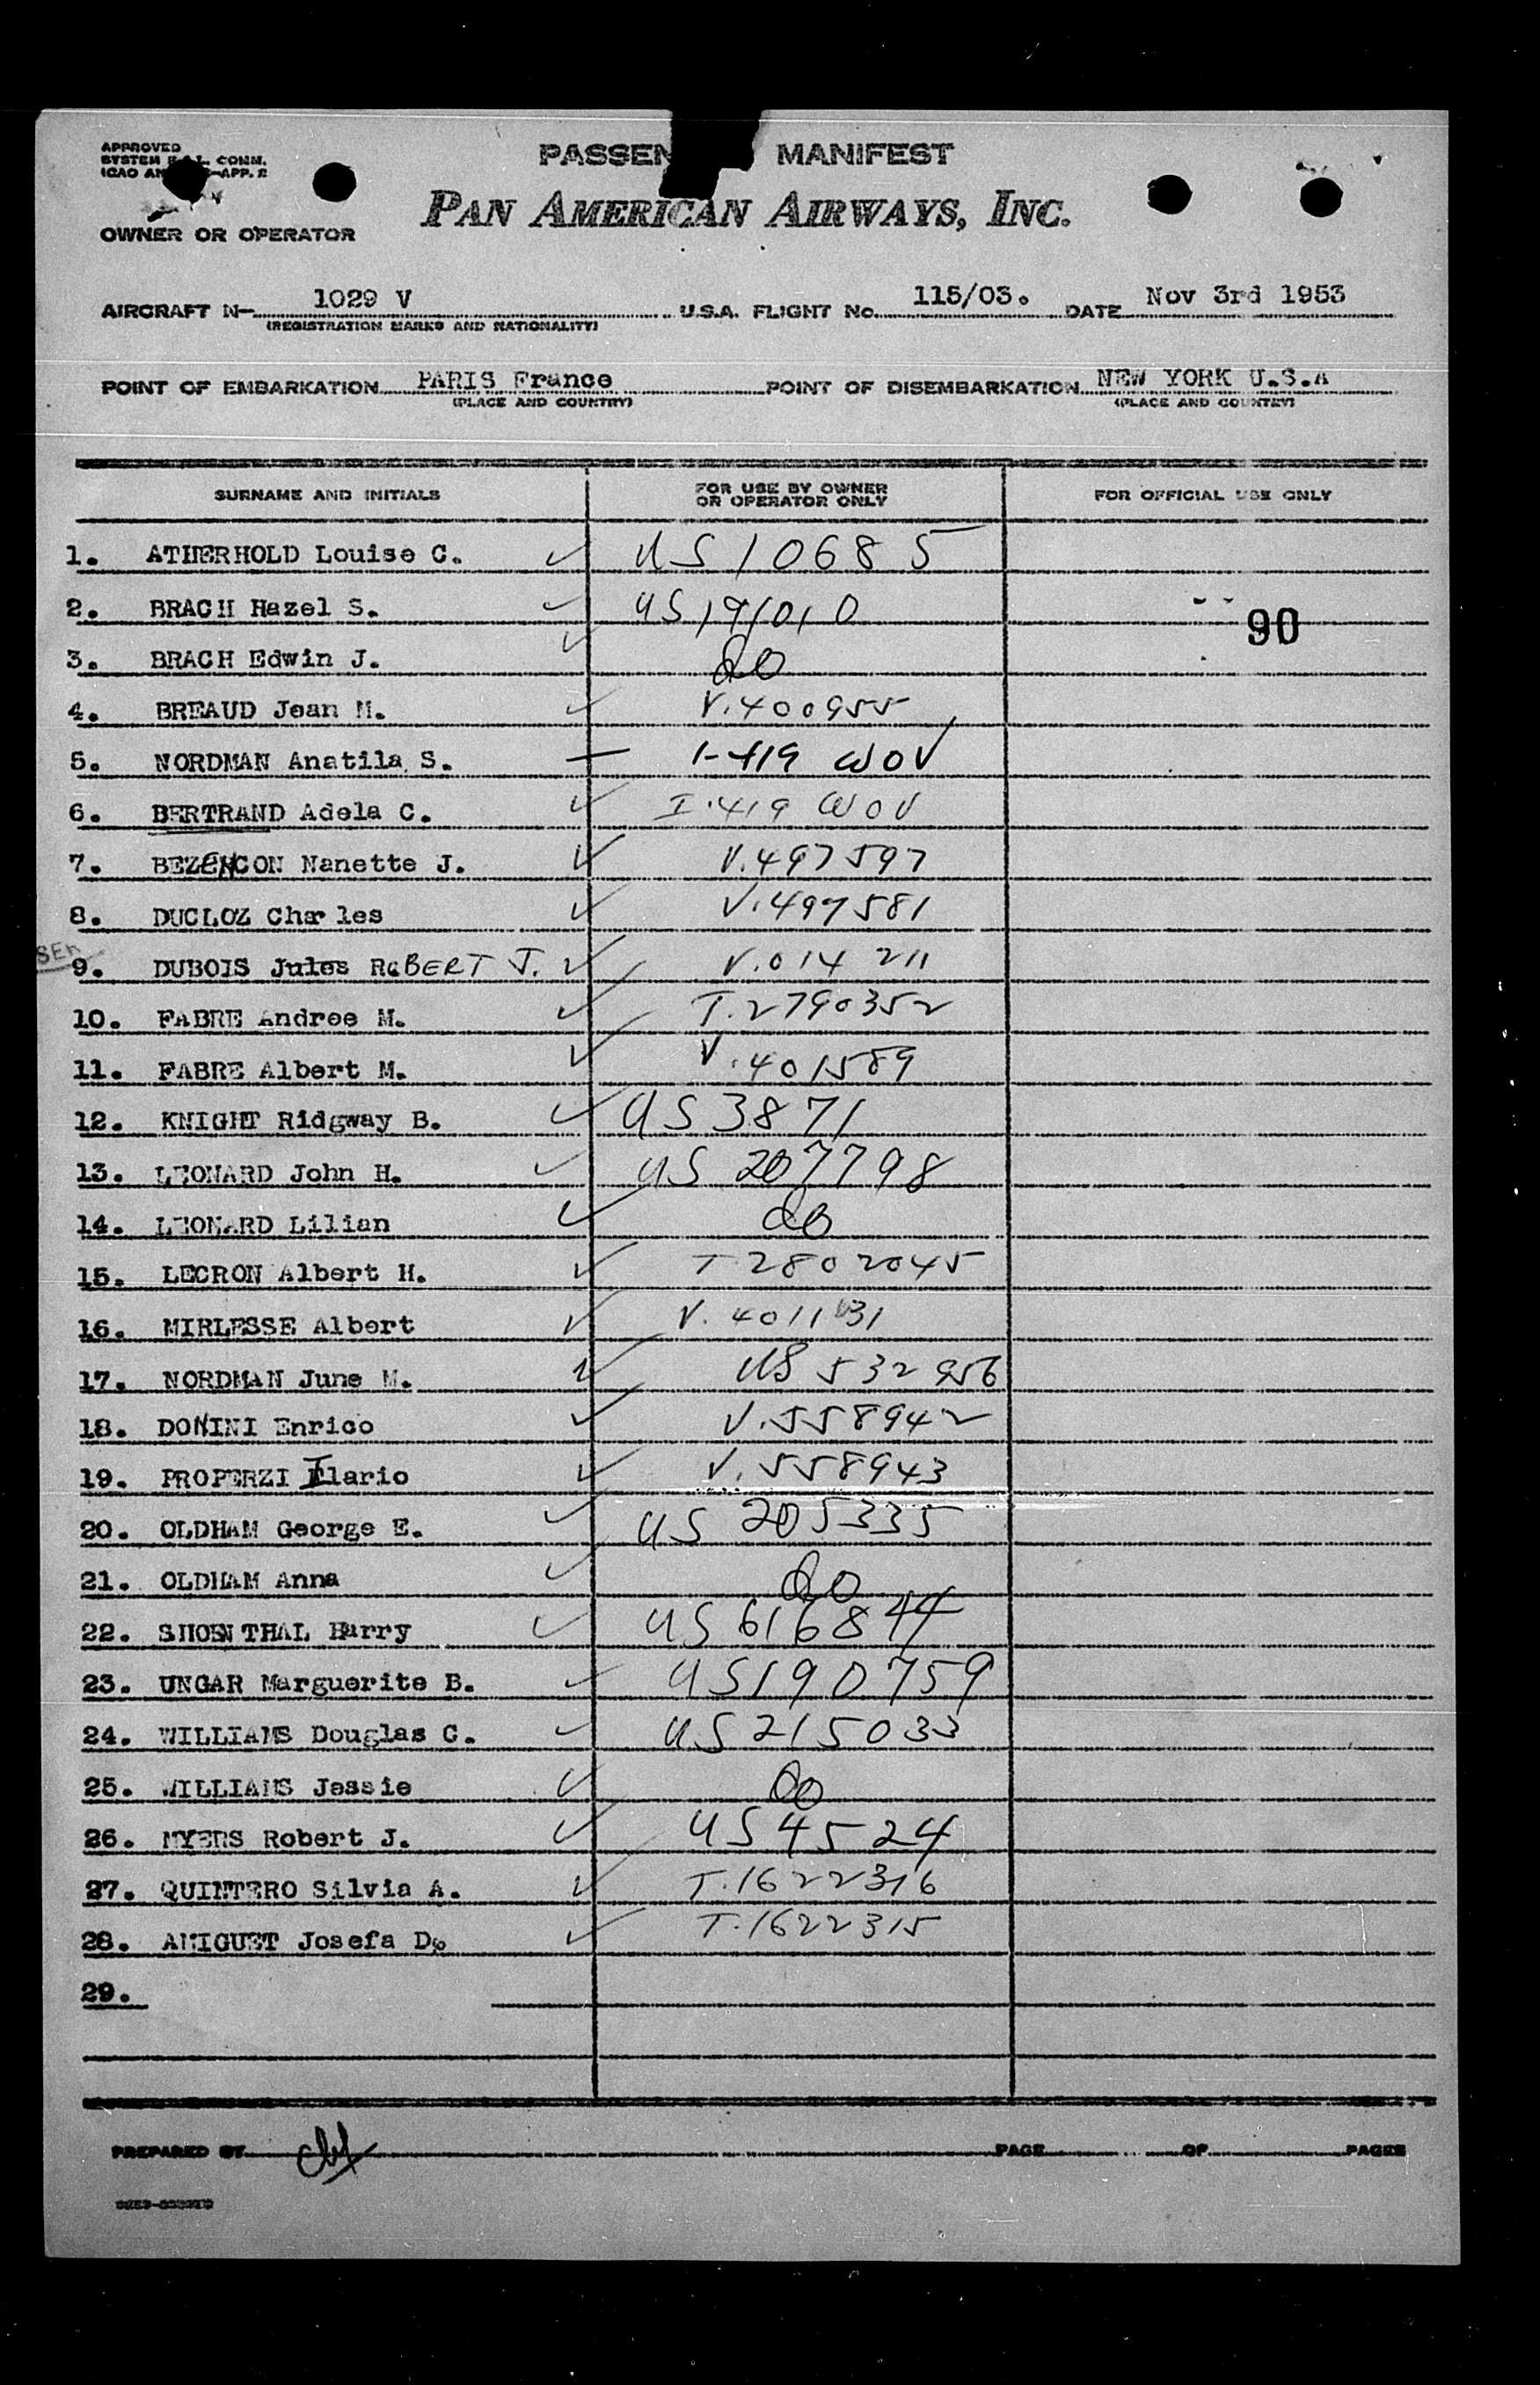 APPROVED
SYSTEM COMM.
ICAO APP. 2
PASSEN MANIFEST
PAN AMERICAN AIRWAYS, INC.
OWNER OR OPERATOR
AIRCRAFT N- 1029 V U.S.A. FLIGHT No. 115/03. DATE Nov 3rd 1953
(REGISTRATION MARKS AND NATIONALITY)
POINT OF EMBARKATION PARIS France POINT OF DISEMBARKATION NEW YORK U.S.A
(PLACE AND COUNTRY) (PLACE AND COUNTRY)
SURNAME AND INITIALS FOR USE BY OWNER OR OPERATOR ONLY FOR OFFICIAL USE ONLY
1. ATHERHOLD Louise C. ✓ US 10685
2. BRACH Hazel S. ✓ US 191010 90
3. BRACH Edwin J. ✓ do
4. BREAUD Jean M. ✓ V.400955
5. NORDMAN Anatila S. — I-419 WOV
6. BERTRAND Adela C. ✓ I.419 WOV
7. BEZENCON Nanette J. ✓ V.497597
8. DUCLOZ Charles ✓ V.497581
SEN
9. DUBOIS Jules ROBERT J. ✓ V.014211
10. FABRE Andree M. ✓ T.2790352
11. FABRE Albert M. ✓ V.401589
12. KNIGHT Ridgway B. ✓ US 3871
13. LEONARD John H. ✓ US 207798
14. LEONARD Lilian ✓ do
15. LECRON Albert H. ✓ T 2802045
16. MIRLESSE Albert ✓ V.
17. NORDMAN June M. ✓ US 532956
18. DONINI Enrico ✓ V.558942
19. PROPERZI Ilario ✓ V.558943
20. OLDHAM George E. ✓ US 205335
21. OLDHAM Anna ✓ do
22. SHOENTHAL Harry ✓ US 616844
23. UNGAR Marguerite B. ✓ US 190759
24. WILLIAMS Douglas C. ✓ US 215033
25. WILLIAMS Jessie ✓ do
26. MYERS Robert J. ✓ US 4524
27. QUINTERO Silvia A. ✓ T.1622316
28. AMIGUET Josefa D. ✓ T.1622315
29.
PREPARED BY PAGE OF PAGES